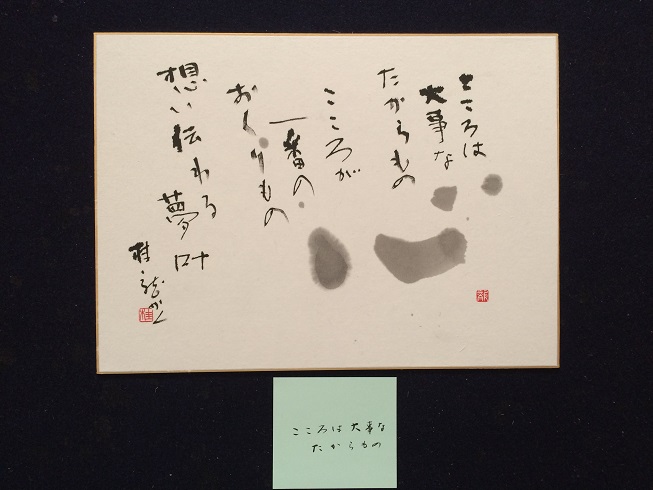 こころは
大事な
たからもの
こころが
一番の
おくりもの
想い伝わる
夢叶
こころは大事な
たからもの